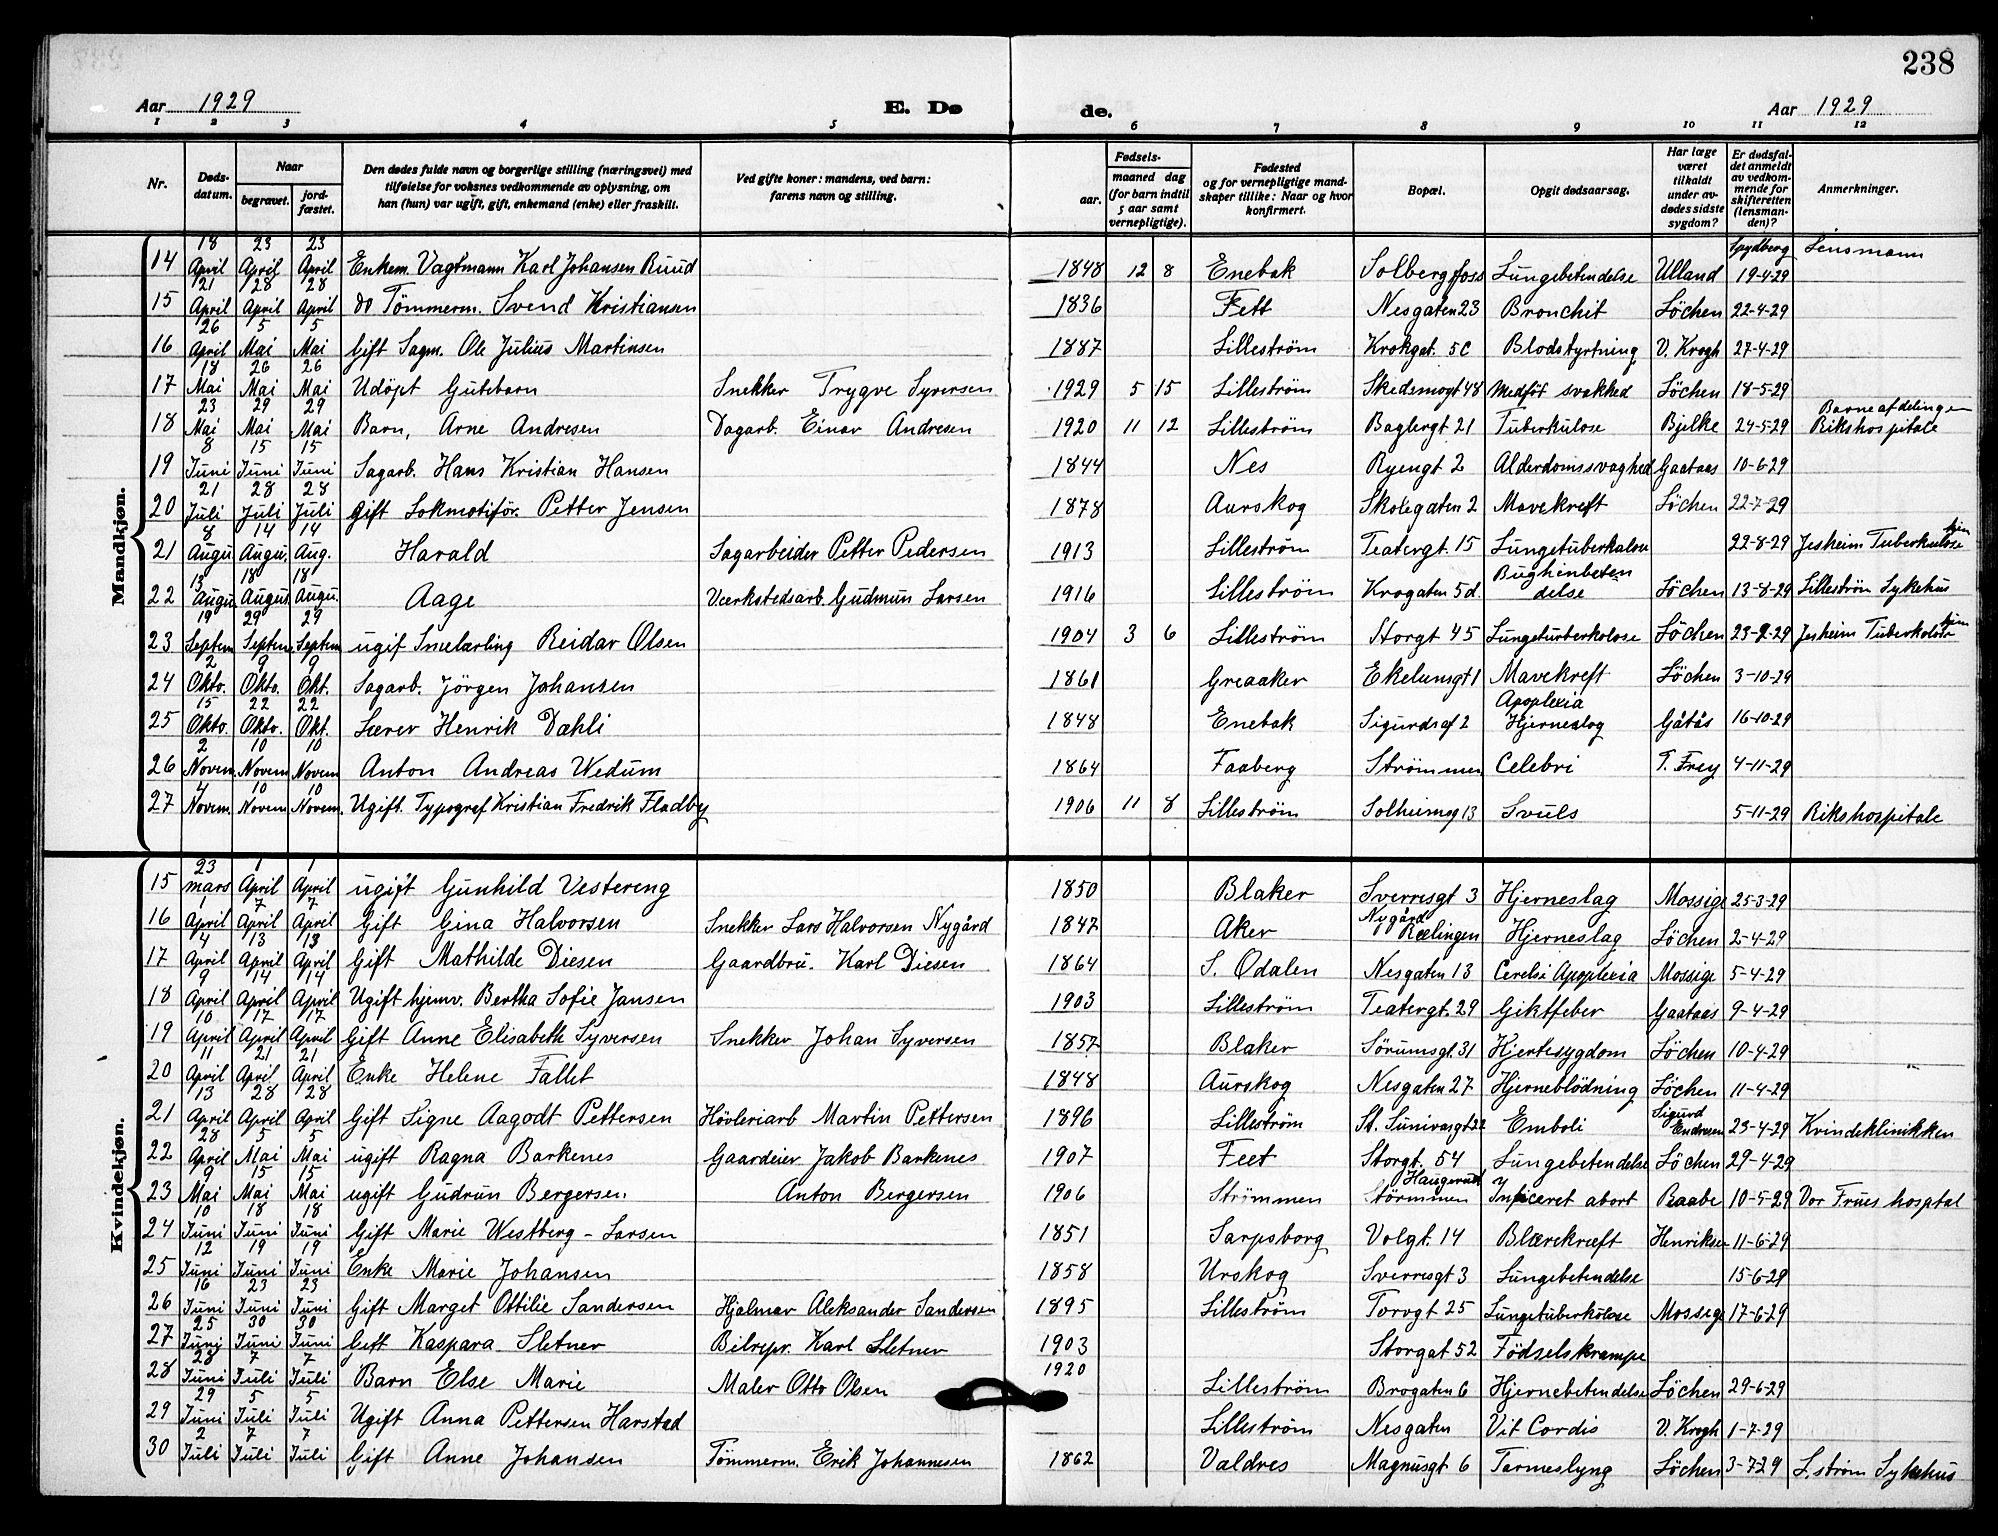 238
Aar 1929 E. Dø de. Aar 1929
1 2 3 4 5 6 7 8 9 10 11 12
Nr. Døds-datum. Naar begravet. jord-fæstet. Den dødes fulde navn og borgerlige stilling (næringsvei) med tilføielse for voksnes vedkommende av oplysning, om han (hun) var ugift, gift, enkemand (enke) eller fraskilt. Ved gifte koner: mandens, ved barn: farens navn og stilling. Fødsels- aar. maaned dag (for barn indtil 5 aar samt vernepligtige). Fødested og for vernepligtige mand-skaper tillike: Naar og hvor konfirmert. Bopæl. Opgit dødsaarsag. Har læge været tilkaldt under av-dødes sidste sygdom? Er dødsfal-det anmeldt av vedkom-mende for skifteretten (lensman-den)? Anmerkninger.
Mandkjøn.
14 18 April 23 April 23 April Enkem. Vagtmann Karl Johansen Ruud 1848 12 8 Enebak Solbergfoss Lungebetendelse Ulland Spydberg 19-4-29 Lensmann
15 21 April 28 April 28 April do Tömmerm. Svend Kristiansen 1836 Fett Nesgaten 23 Bronchit Löchen 22-4-29
16 26 April 5 Mai 5 Mai Gift Sagm. Ole Julius Martinsen 1887 Lilleström Krokgat. 5c Blodstyrtning V. Krogh 27-4-29
17 18 Mai 26 Mai 26 Mai Udöpt Gutebarn Snekker Trygve Syversen 1929 5 15 Lilleström Skedsmogt 48 Medföt svakhed Löchen 18-5-29
18 23 Mai 29 Mai 29 Mai Barn, Arne Andresen Dagarb. Einar Andresen 1920 11 12 Lilleström Baglergt 21 Tuberkulose Bjelke 24-5-29 Barneafdelingen Rikshospitale
19 8 Juni 15 Juni 15 Juni Sagarb. Hans Kristian Hansen 1844 Nes Ryengt 2 Alderdomssvaghed Gaataas 10-6-29
20 21 Juli 28 Juli 28 Juli gift Lokmotiför. Petter Jensen 1878 Aurskog Skolegaten 2 Mavekreft Löchen 22-7-29
21 8 Augu 14 Augu. 14 Aug. Harald Sagarbeider Petter Pedersen 1913 Lilleström Teatergt. 15 Lungetuberkulose 22-8-29 Jesheim Tuberkulose hjem
22 13 Augu 18 Augus 18 Augu. Aage Værkstedsarb. Gudmun Larsen 1916 Lilleström Krogaten 5d. Bughinbeten delse Löchen 13-8-29 Lilleström Sykehus
23 19 Septem 29 Septem. 29 Septem ugif Smelærling Reidar Olsen 1904 3 6 Lilleström Storgt 45 Lungeturberkolose Löchen 23-9-29 Jesheim Tuberkolose hjem
24 2 Okto. 9 Okto. 9 Okt. Sagarb. Jörgen Johansen 1861 Greaaker Ekelunsgt 1 Mavekreft Löchen 3-10-29
25 15 Okto. 22 Okto. 22 Okt. Lærer Henrik Dæhli 1848 Enebak Sigurdsgt 2 Apoplexia Hjerneslag Gåtås 16-10-29
26 2 Novem. 10 Novem 10 Novem Anton Andreas Wedum 1864 Faaberg Strömmen Celebri T. Frey 4-11-29
27 4 Novem. 10 Novem 10 Novem. Ugift. Typograf Kristian Fredrik Fladby 1906 11 8 Lilleström Solheimsg 13 Svuls 5-11-29 Rikshospitale
Kvindekjøn.
15 23 mars 1 April 1 April ugift Gunhild Vestereng 1850 Blaker Sverresgt 3 Hjerneslag Mossige 25-3-29
16 1 April 7 April 7 April Gift Gina Halvorsen Snekker Lars Halvorsen Nygård 1847 Aker Nygård Rælingen Hjerneslag Löchen 2-4-29
17 4 April 13 April 13 April Gift Mathilde Diesen Gaardbru. Karl Diesen 1864 S. Odalen Nesgaten 13 Cerelsi Apoplexia Mossige 5-4-29
18 9 April 14 April 14 April Ugift hjemv. Bertha Sofie Jansen 1903 Lilleström Teatergt. 29 Giktfeber Gaataas 9-4-29
19 10 April 17 April 17 April Gift Anne Elisabeth Syversen Snekker Johan Syversen 1857 Blaker Sörumsgt. 31 Hjertesygdom Löchen 10-4-29
20 11 April 21 April 21 April Enke Helene Fallet 1848 Aurskog Nesgaten 27 Hjerneblödning Löchen 11-4-29
21 13 April 28 April 28 April Gift Signe Aagodt Pettersen Hövleriarb Martin Pettersen 1896 Lilleström St. Sunivasgt 22 Emboli Sigurd Endresen 23-4-29 Kvindeklinikken
22 28 April 5 Mai 5 Mai ugift Ragna Barkenes Gaardeier Jakob Barkenes 1907 Feet Storgt. 54 Lungebetendelse Löchen 29-4-29
23 9 Mai 15 Mai 15 Mai ugift Gudrun Bergersen Anton Bergersen 1906 Strömmen Haugerud Störmmen Inficeret abort Raabe 10-5-29 Vor Frues hosptal
24 10 Juni 18 Juni 18 Juni Gift Marie Westberg-Larsen 1851 Sarpsborg Volgt. 14 Blærekræft Henriksen 11-6-29
25 12 Juni 19 Juni 19 Juni Enke Marie Johansen 1858 Urskog Sverresgt 3 Lungebetendelse 15-6-29
26 16 Juni 23 Juni 23 Juni Gift Marget Ottilie Sandersen Hjalmar Aleksander Sandersen 1895 Lilleström Torvgt 25 Lungetuberkulose Mossige 17-6-29
27 25 Juni 30 Juni 30 Juni Gift Kaspara Sletner Bilrepr. Karl Sletner 1903 Storgat 52 Födselskrampe
28 28 Juni 7 Juli 7 Juli Barn Else Marie Maler Otto Olsen 1920 Lilleström Brogaten 6 Hjernebetendelse Löchen 29-6-29
29 29 Juni 5 Juli 5 Juli Ugift Anna Pettersen Harstad Lilleström Nesgaten Vit Cordis V. Krogh 1-7-29
30 2 Juli 7 Juli 7 Juli Gift Anne Johansen Tömmerm. Erik Johannesen 1862 Valdres Magnusgt 6 Tarmeslyng Löchen 3-7-29 L.ström Sykehus